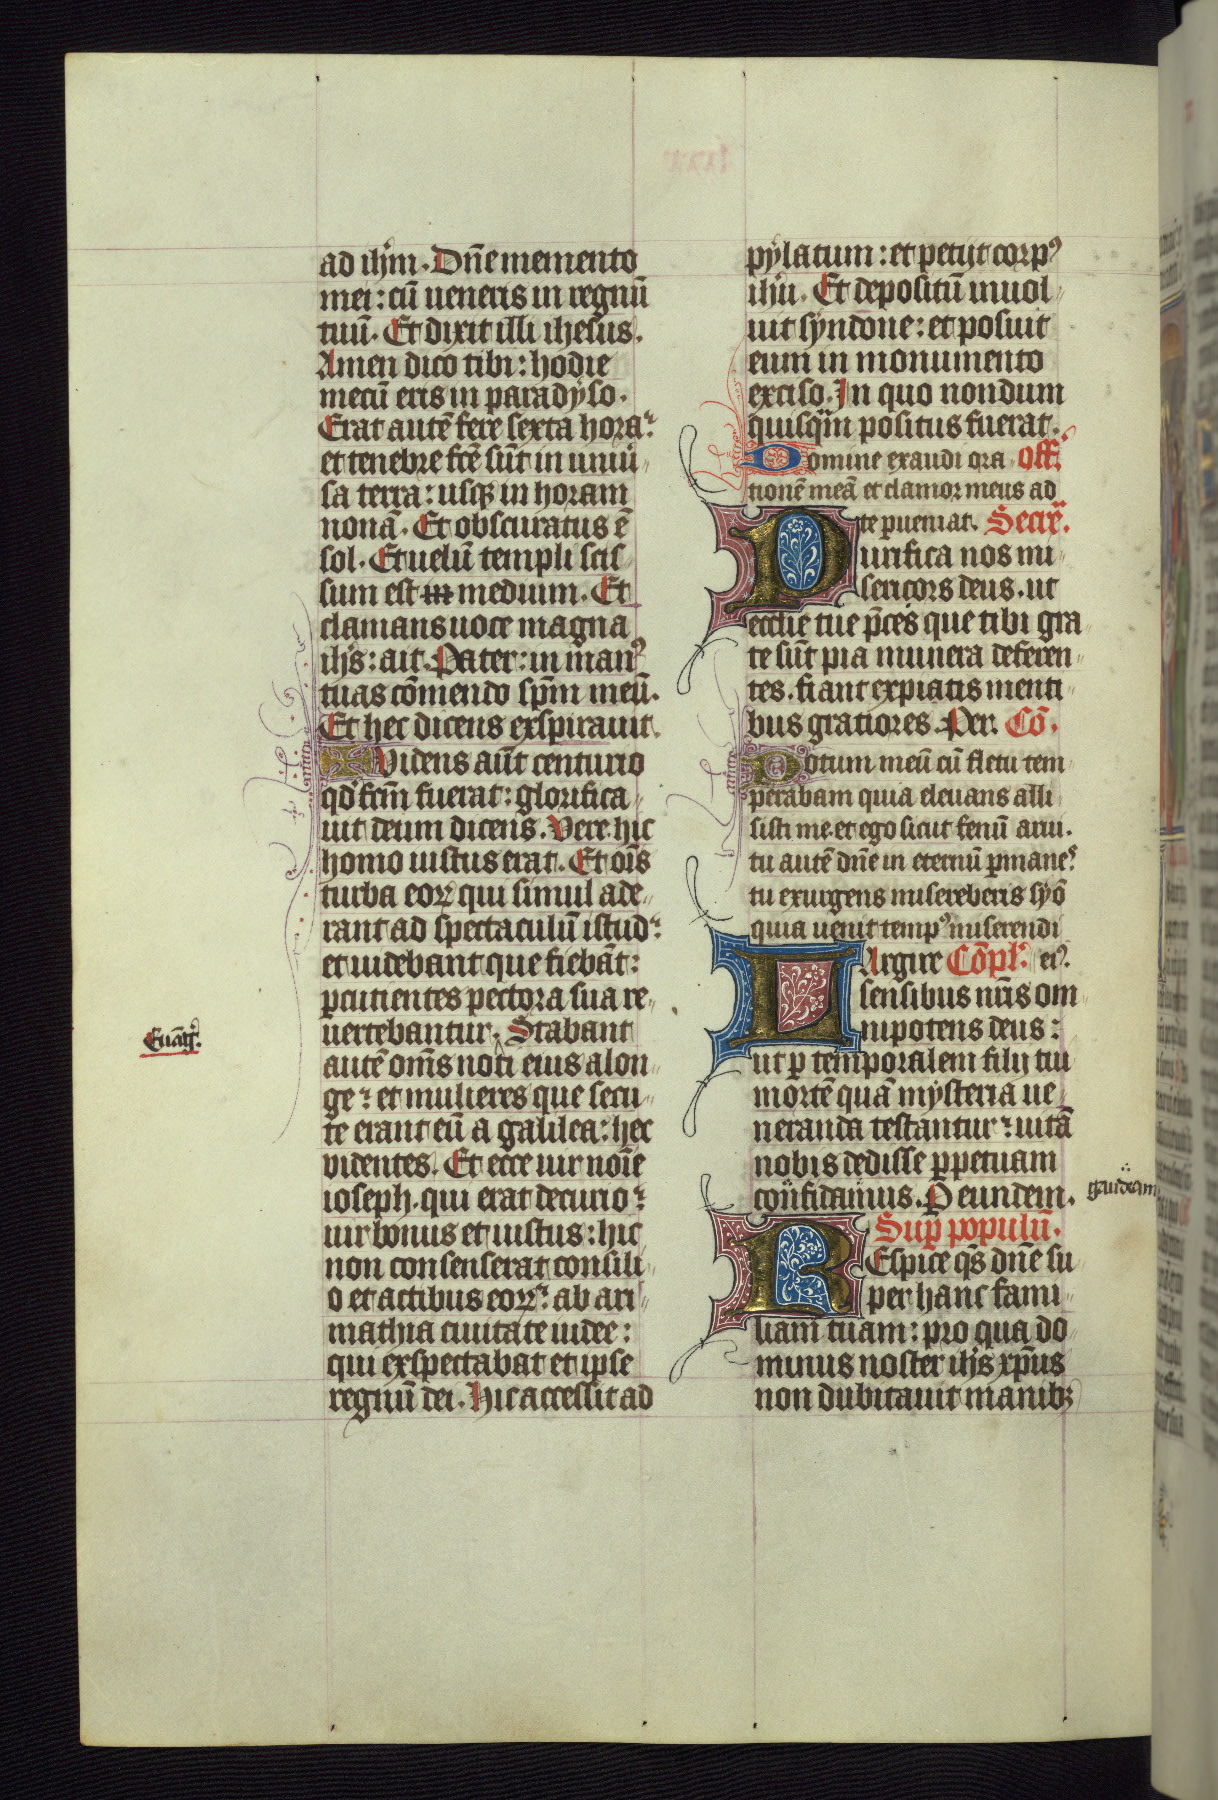 ad ihm̄. Dn̄e memento
mei: cū ueneris in regnū
tuū. Et dixit illi ihesus.
Amen dico tibi: hodie
mecū eris in paradyso.
Erat autē fere sexta hora:
et tenebre fc̄e sūt in uniū-
sa terra: usq; in horam
nonā. Et obscuratus ē
sol. Et uelū templi scis-
sum est m medium. Et
clamans uoce magna
ihs: ait. Pater: in man⁹
tuas cōmendo spm̄ meū.
Et hec dicens exspirauit.
Videns aūt centurio
qd̄ fcm̄ fuerat: glorifica-
uit deum dicens. Vere hic
homo iustus erat. Et oīs
turba eoꝝ qui simul ade-
rant ad spectaculū istud:
et uidebant que fiebāt:
ꝑcutientes pectora sua re-
uertebantur. Stabant
autē om̄s noti eius a lon-
ge: et mulieres que secu-
te erant eū a galilea: hec
videntes. Et ecce uir noīe
ioseph. qui erat decurio:
uir bonus et iustus: hic
non consenserat consili-
o et actibus eoꝝ: ab ari-
mathia ciuitate iudee:
qui exspectabat et ipse
regnū dei. Hic accessit ad
Euāg̃.
pylatum: et petijt corp⁹
ihū. Et depositū inuol-
uit syndone: et posuit
eum in monumento
exciso. In quo nondum
quisq̄m positus fuerat.
Domine exaudi ora Off.
tionē meā et clamor meus ad
te perueniat. Secrē.
Purifica nos mi-
sericors deus. ut
ecclie tue p̄ces que tibi gra-
te sūt pia munera deferen-
tes. fiant expiatis menti-
bus gratiores. Per. Cō.
Potum meū cū fletu tem-
perabam quia eleuans alli-
sisti me. et ego sicut fenū arui.
tu autē dn̄e in eternū ꝑmanes
tu exurgens misereberis syō
quia uenit temp⁹ miserendi
LArgire Cōpl̄. ei⁹.
sensibus nr̄is om-
nipotens deus:
ut ꝑ temporalem filij tui
mortē quā mysteria ue-
neranda testantur: uitā
nobis dedisse ꝑpetuam
confidamus. P eundem.
gaudeam
Suꝑ populū.
REspice qs̄ dn̄e su-
per hanc fami-
liam tuam: pro qua do-
minus noster ihs xp̄us
non dubitauit manib;